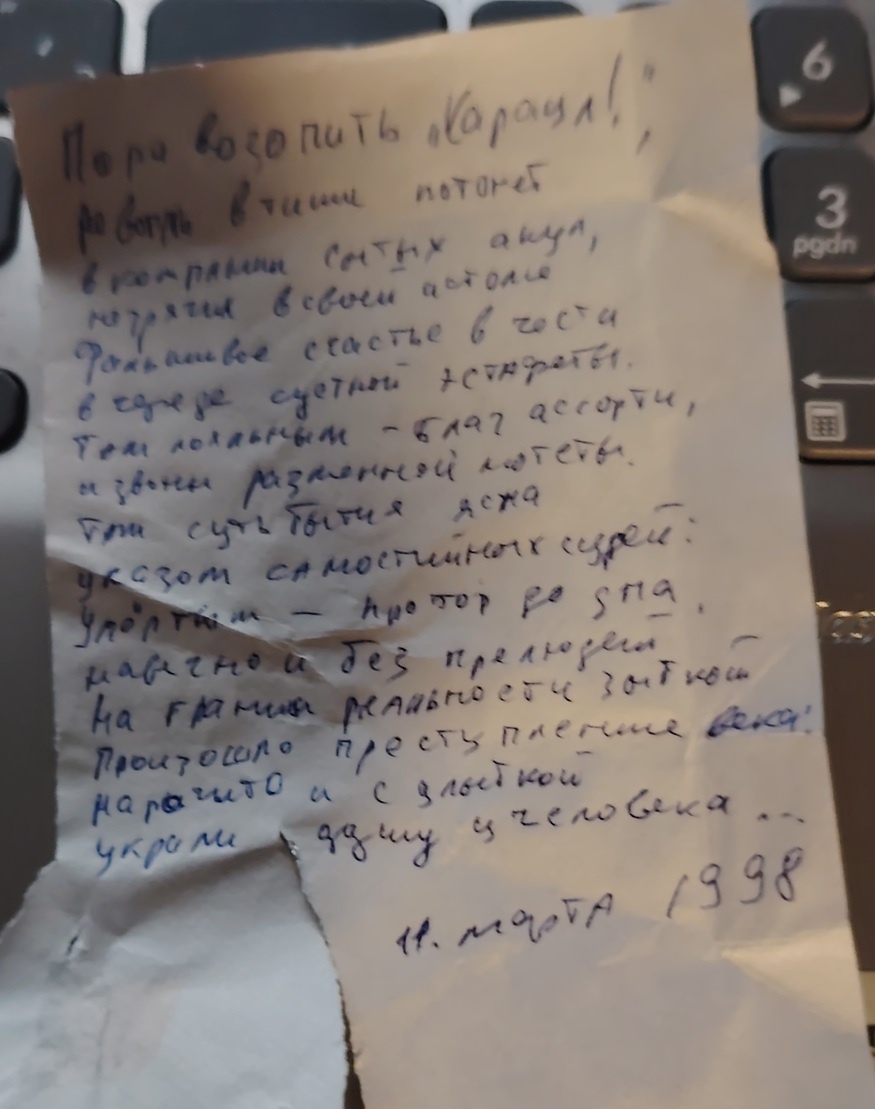 Пора возопить „Караул!",
но вопль в тиши потонет
в компании сытых акул,
незрячих в своей
Фальшивое счастье в чести
в чреде суетной эстафеты.
Там лояльным – благ ассорти,
и звоны разменной монеты.
Там суть бытия ясна
указом самостийных судей:
упёртым — простор до дна,
навечно и без прелюдей
На грани реальности зыбкой
Произошло преступление века:
нарочито и с улыбкой
украли душу у человека ...
11. марта 1998
6
3
pgdn